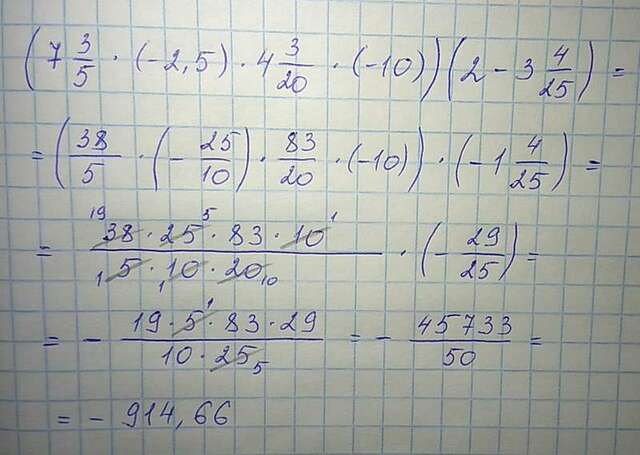 (7 3/5 · (-2,5) · 4 3/20 · (-10))(2 - 3 4/25) =
= (38/5 · (- 25/10) · 83/20 · (-10)) · (-1 4/25) =
= 19 38 · 25 5 · 83 · 10 1 / 1 5 · 1 10 · 20 10 · (- 29/25) =
= - 19 · 5 1 · 83 · 29 / 10 · 25 5 = - 45733/50 =
= - 914,66